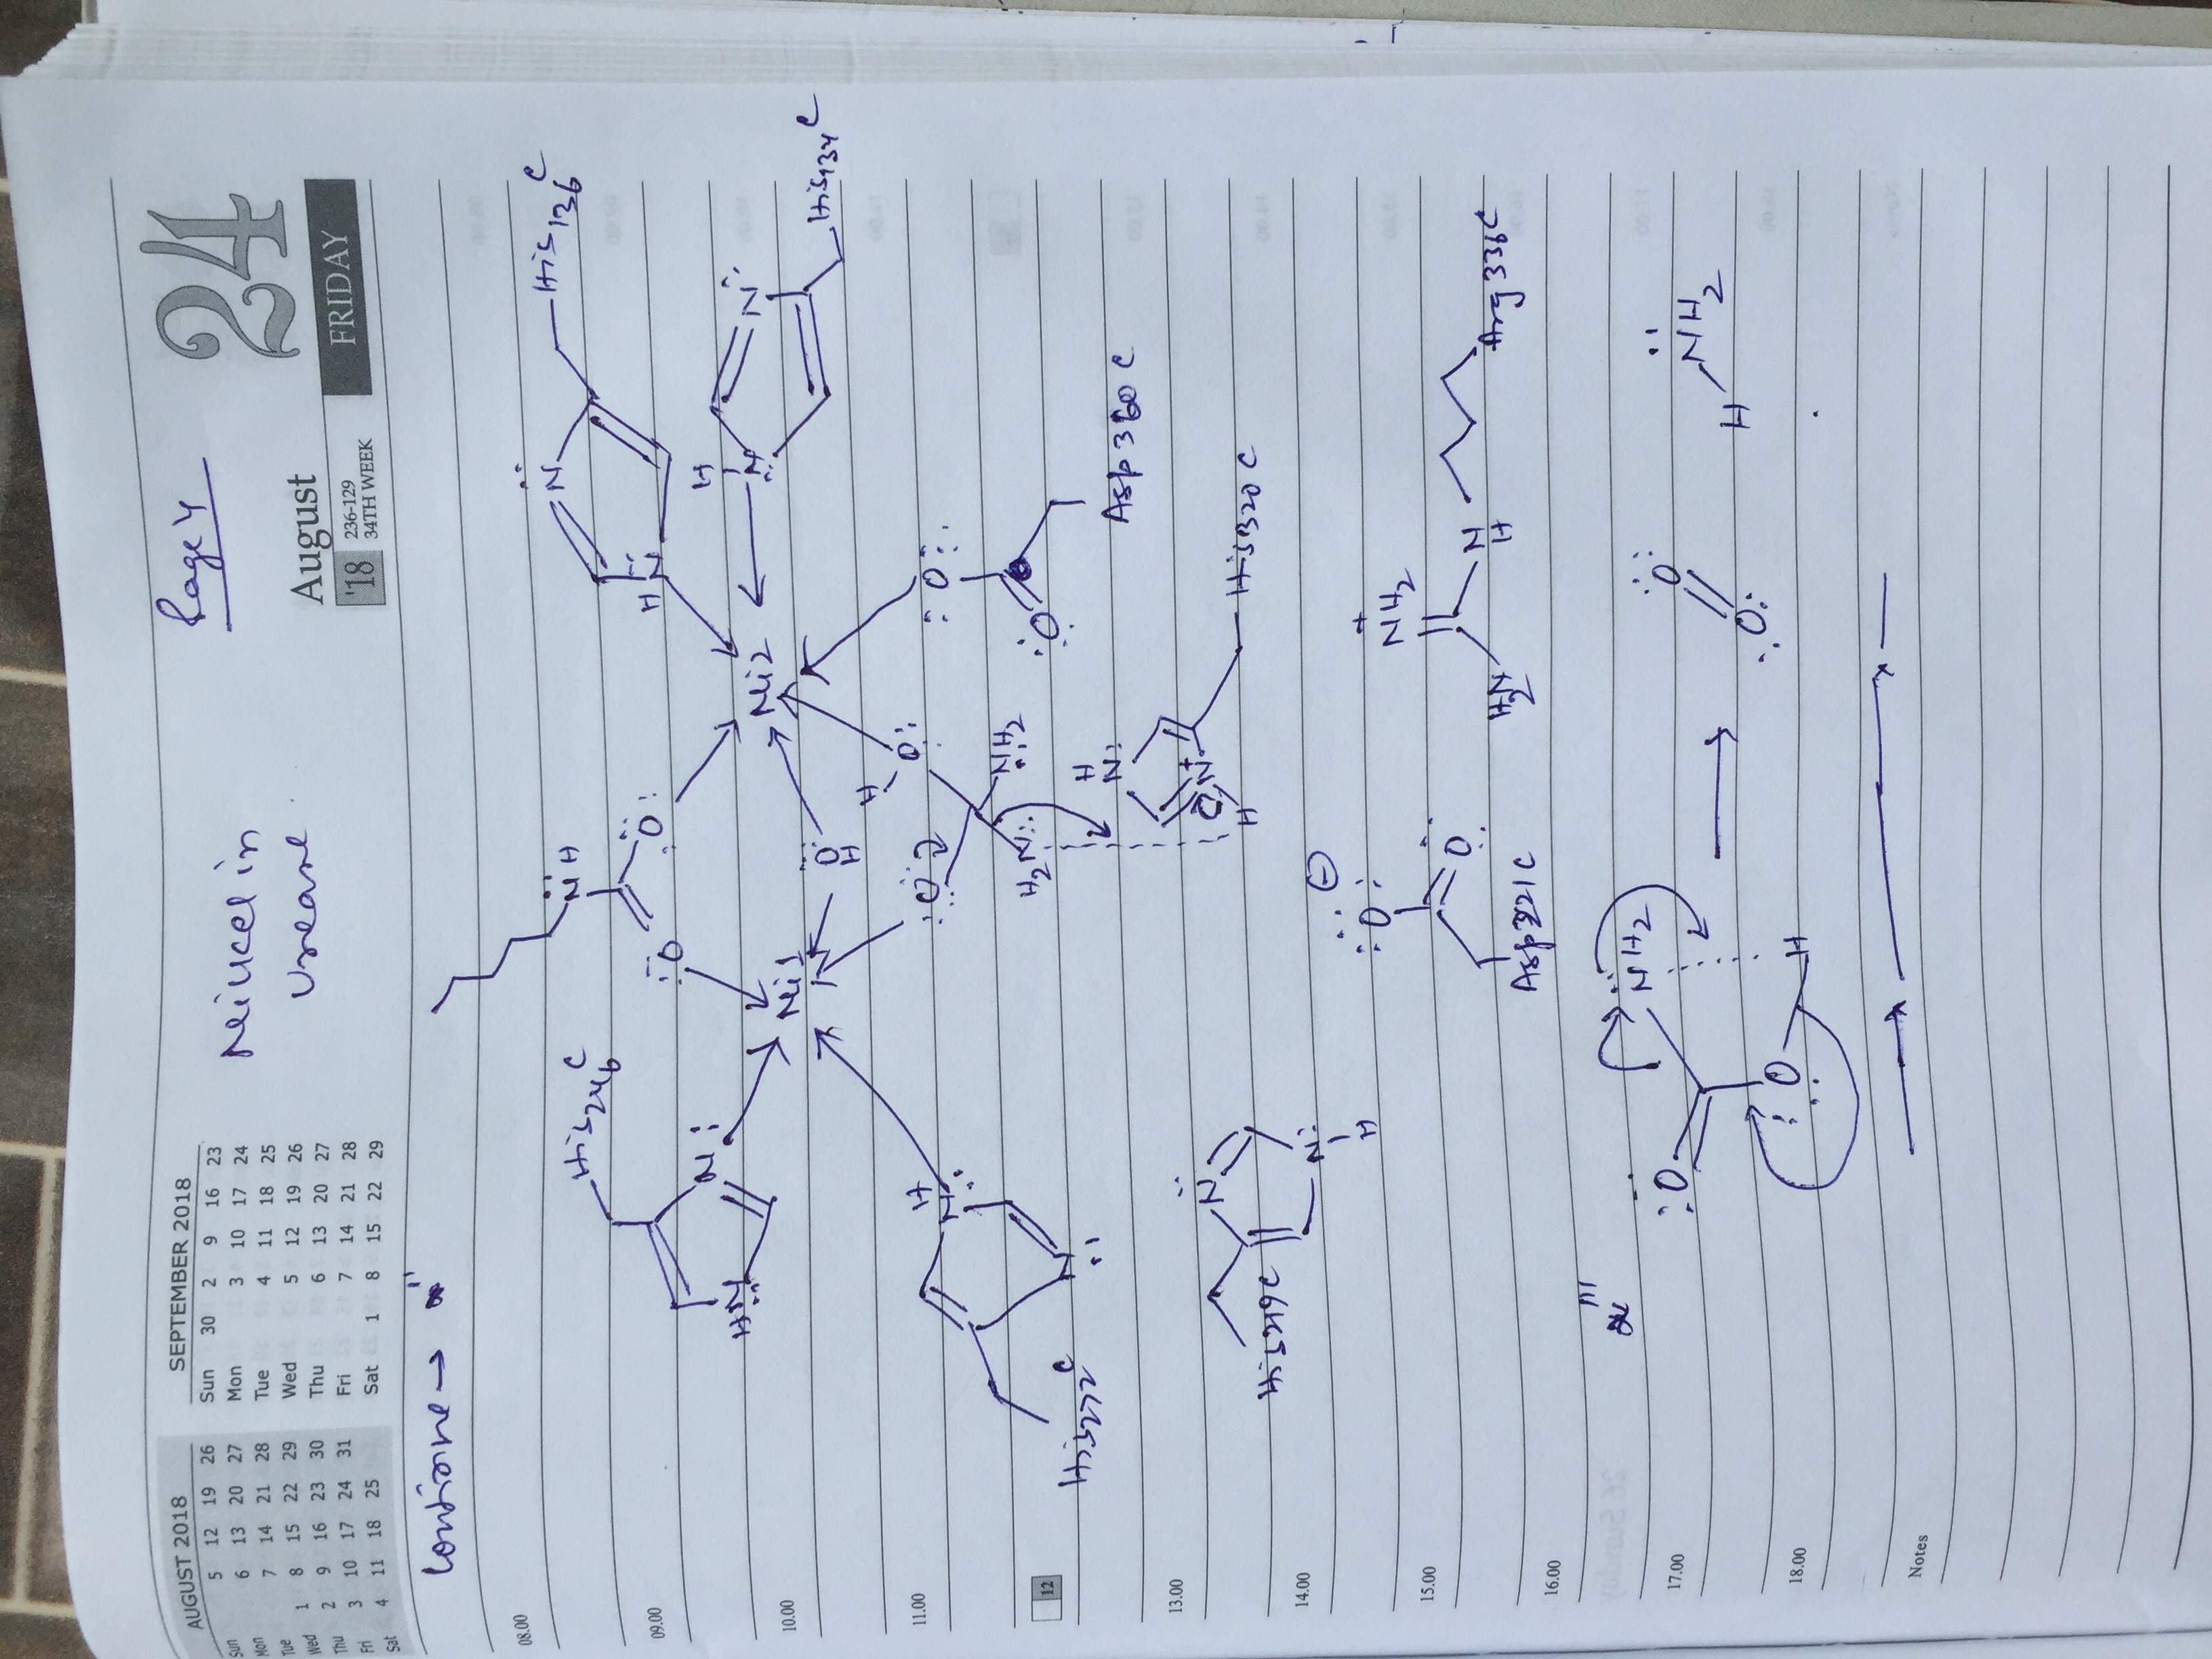 AUGUST 2018
Sun 5 12 19 26
Mon 6 13 20 27
Tue 7 14 21 28
Wed 1 8 15 22 29
Thu 2 9 16 23 30
Fri 3 10 17 24 31
Sat 4 11 18 25
SEPTEMBER 2018
Sun 30 2 9 16 23
Mon 3 10 17 24
Tue 4 11 18 25
Wed 5 12 19 26
Thu 6 13 20 27
Fri 7 14 21 28
Sat 1 8 15 22 29
Neiucel in
Urearre
Page 4
August
'18
236-129
34TH WEEK
24
FRIDAY
08.00
09.00
10.00
11.00
12
13.00
14.00
15.00
16.00
17.00
18.00
Notes
N̈H
O
Ö:
His246C
N:
HN
Ni1
Ni2
His136C
N
HN
H
N
N
His134C
OH
:O:
H
O:
H2N:
NH2
:O:
:O
Asp360C
H
N
N
His272C
H
N:
N+
H
His320C
N
N
H
His219C
:O: ⊖
O:
Asp221C
+
NH2
H2N
N
H
Arg336C
:O
NH2
:O
H
O
O:
H NH2